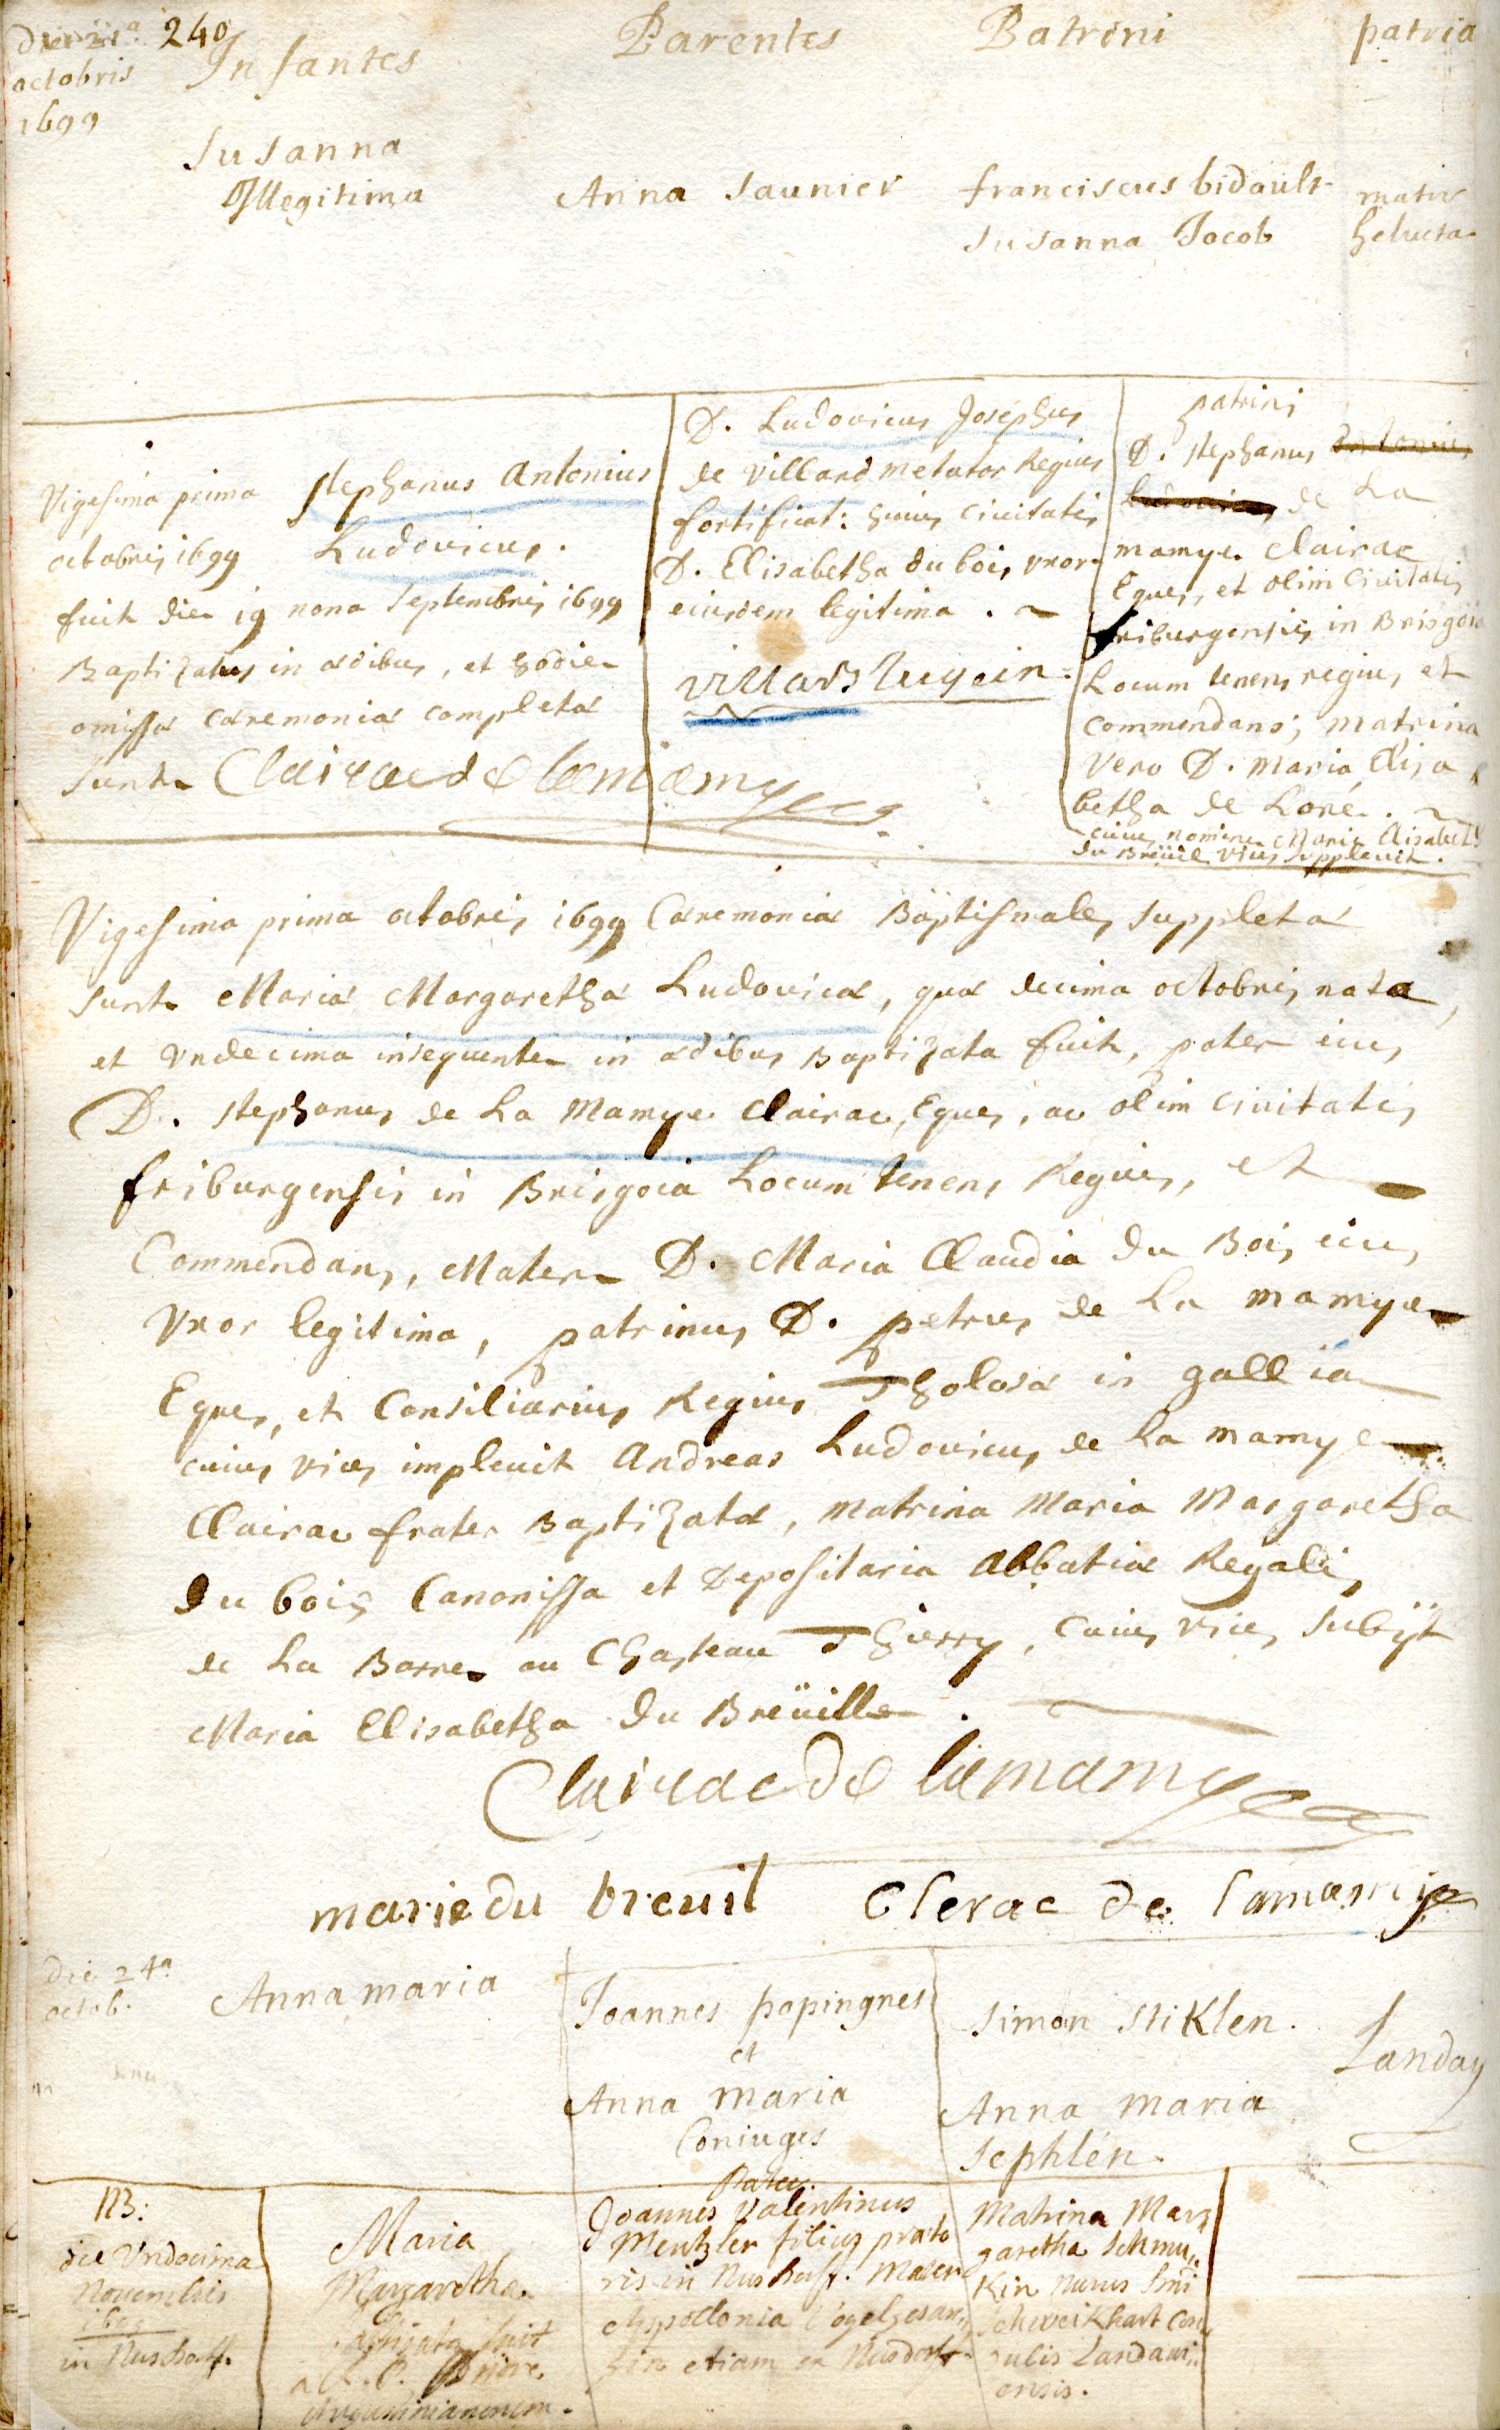 240
Die 21a
octobris
1699
Infantes
Parentes
Patrini
patria
Susanna
Illegitima
Anna Saunier
franciscus bidault
Susanna Jocob
mater
helueta
Vigesima prima
octobris 1699
Stephanus Antonius
Ludovicus.
fuit die 19 nona Septembris 1699
Baptizatus in ædibus, et hodie
omissæ cæremoniæ completæ
sunt.
Clairac de lamamye
D. Ludovicus Josephus
de Villard metator Regius
fortificat: huius ciuitatis
D. Elisabetha du bois, vxor
eiusdem legitima.
villars lugein
patrini
D. Stephanus Antonius
Ludovicus de La
mamye Clairac
Eques, et olim Ciuitatis
friburgensis in Brisgoia
Locum tenens regius, et
Commendans; matrina
vero D. maria Elisa
betha de Loré.
cuius nomine Maria Elisabeth
du Breüil vices supplevit.
Vigesima prima octobris 1699 Cæremoniæ Baptismales suppletæ
sunt Mariæ Margarethæ Ludovicæ, quæ decima octobris nata,
et vndecima insequente in ædibus Baptizata fuit, pater eius
D. Stephanus de La Mamye Clairac, Eques, ac olim ciuitatis
friburgensis in Brisgoia Locum tenens Regius, et
Commendans, Mater D. Maria Claudia du Bois eius
vxor legitima, patrinus D. petrus de La mamye
Eques, et Consiliarius Regius Tholosæ in gallia
cuius vices impleuit Andreas Ludovicus de La mamye
Clairac frater Baptizatæ, Matrina Maria Margaretha
du bois Canonissa et Depositaria Abbatiæ Regalis
de La Barre au Chasteau Thierry, cuius vices subijt
Maria Elisabetha du Breüille.
Clairac de lamamye
marie du breuil
Clerac de lamamije
Die 24a
octob.
Anna maria
Joannes popingnes
et
Anna maria
Coniuges
Simon Stiklen.
Anna maria
Sephlen.
Landau
NB:
die Vndecima
Novembris
in Nusdorff.
Maria
Margaretha.
baptizata fuit
a R. P. Priore
Augustinianorum.
Pater
Joannes Valentinus
Mentzler filius præto
ris in Nusdorff. Mater
Appollonia Vogelgesan„
gin etiam ex Nusdorff.
Matrina Mar„
garetha Schmu„
kin Nurus Dni
Schweikhart Con„
sulis Landavi„
ensis.